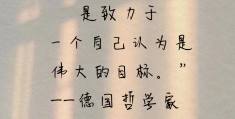 是致力于
一个自己认为是
伟大的目标。”
--德国哲学家